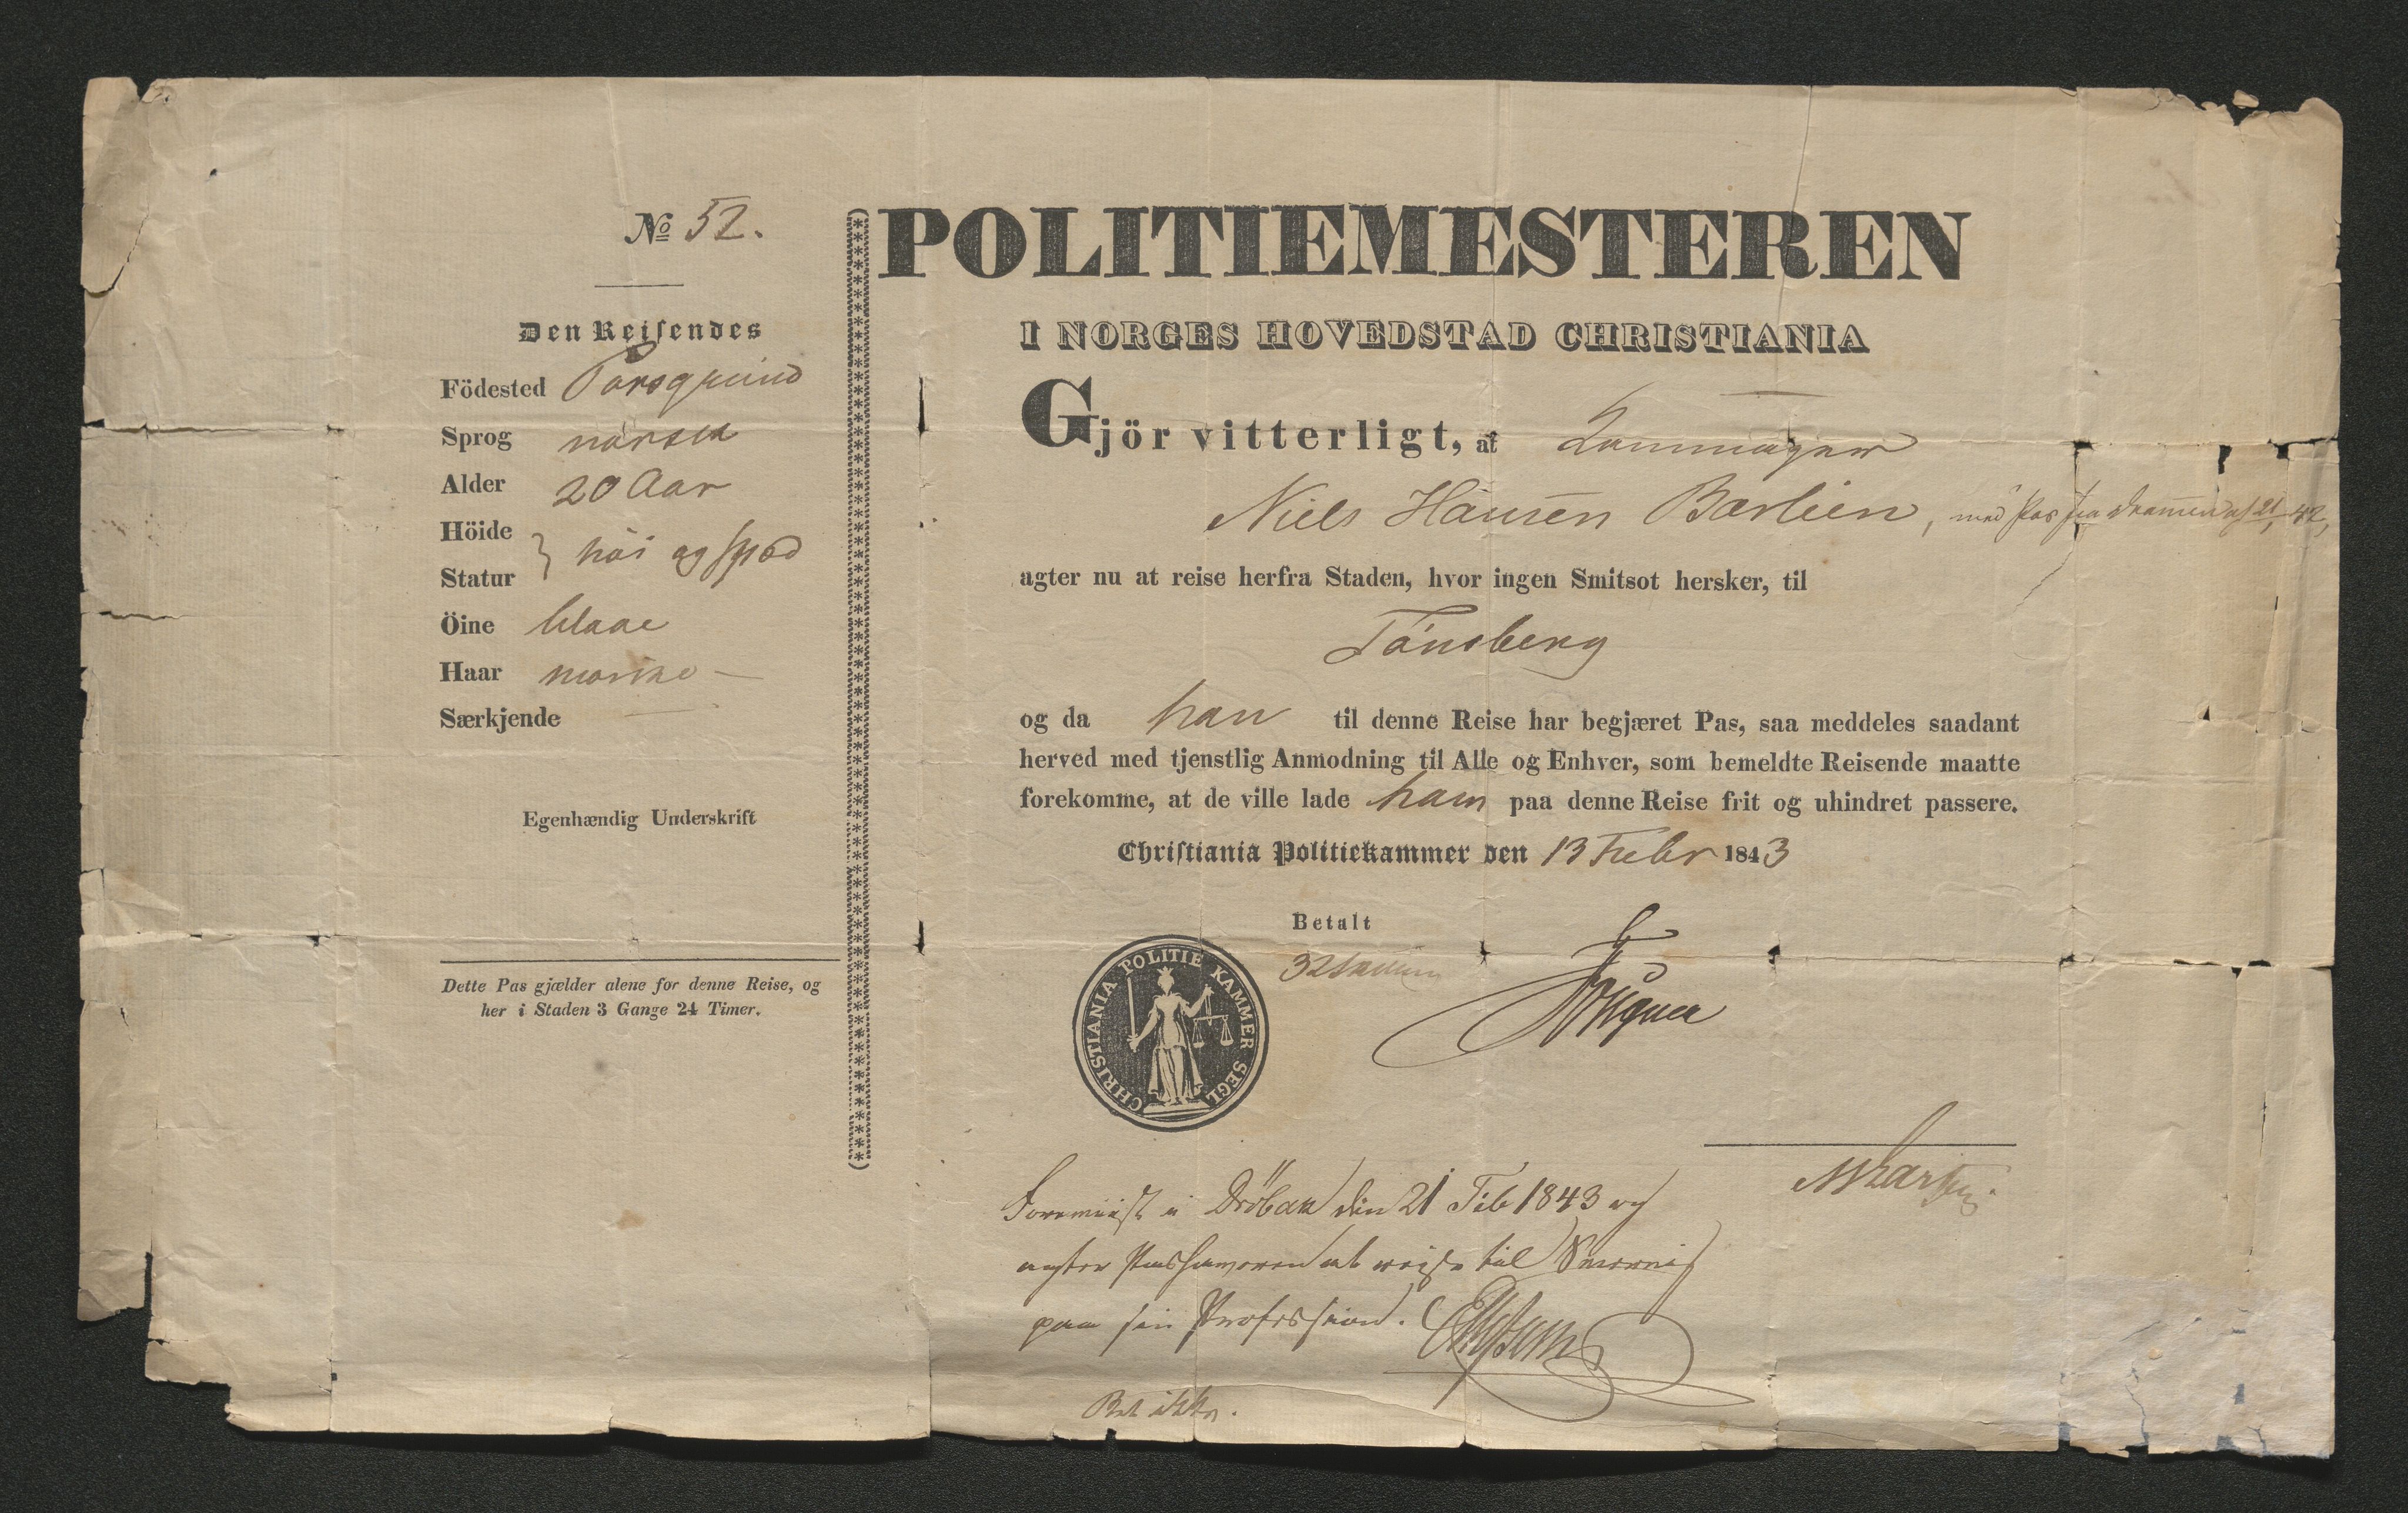 No 52.
Den Reisendes
Födested Porsgrund
Sprog norsk
Alder 20 Aar
Höide
Statur } höi og spæd
Öine blaae
Haar mörke —
Særkjende —
Egenhændig Underskrift
Dette Pas gjælder alene for denne Reise, og
her i Staden 3 Gange 24 Timer.
POLITIEMESTEREN
I NORGES HOVEDSTAD CHRISTIANIA
Gjör vitterligt, at
Niels Hansen Bærlien, med Pas fra
agter nu at reise herfra Staden, hvor ingen Smitsot hersker, til
Tönsberg
og da han til denne Reise har begjæret Pas, saa meddeles saadant
herved med tjenstlig Anmodning til Alle og Enhver, som bemeldte Reisende maatte
forekomme, at de ville lade ham paa denne Reise frit og uhindret passere.
Christiania Politiekammer den 13 Febr 1843
Betalt
CHRISTIANIA POLITIE KAMMER SEGL
Foreviist i Dröbak den 21 Feb 1843 og
agter Passhaveren at reise til
paa sin Profession.
Bet ikke.